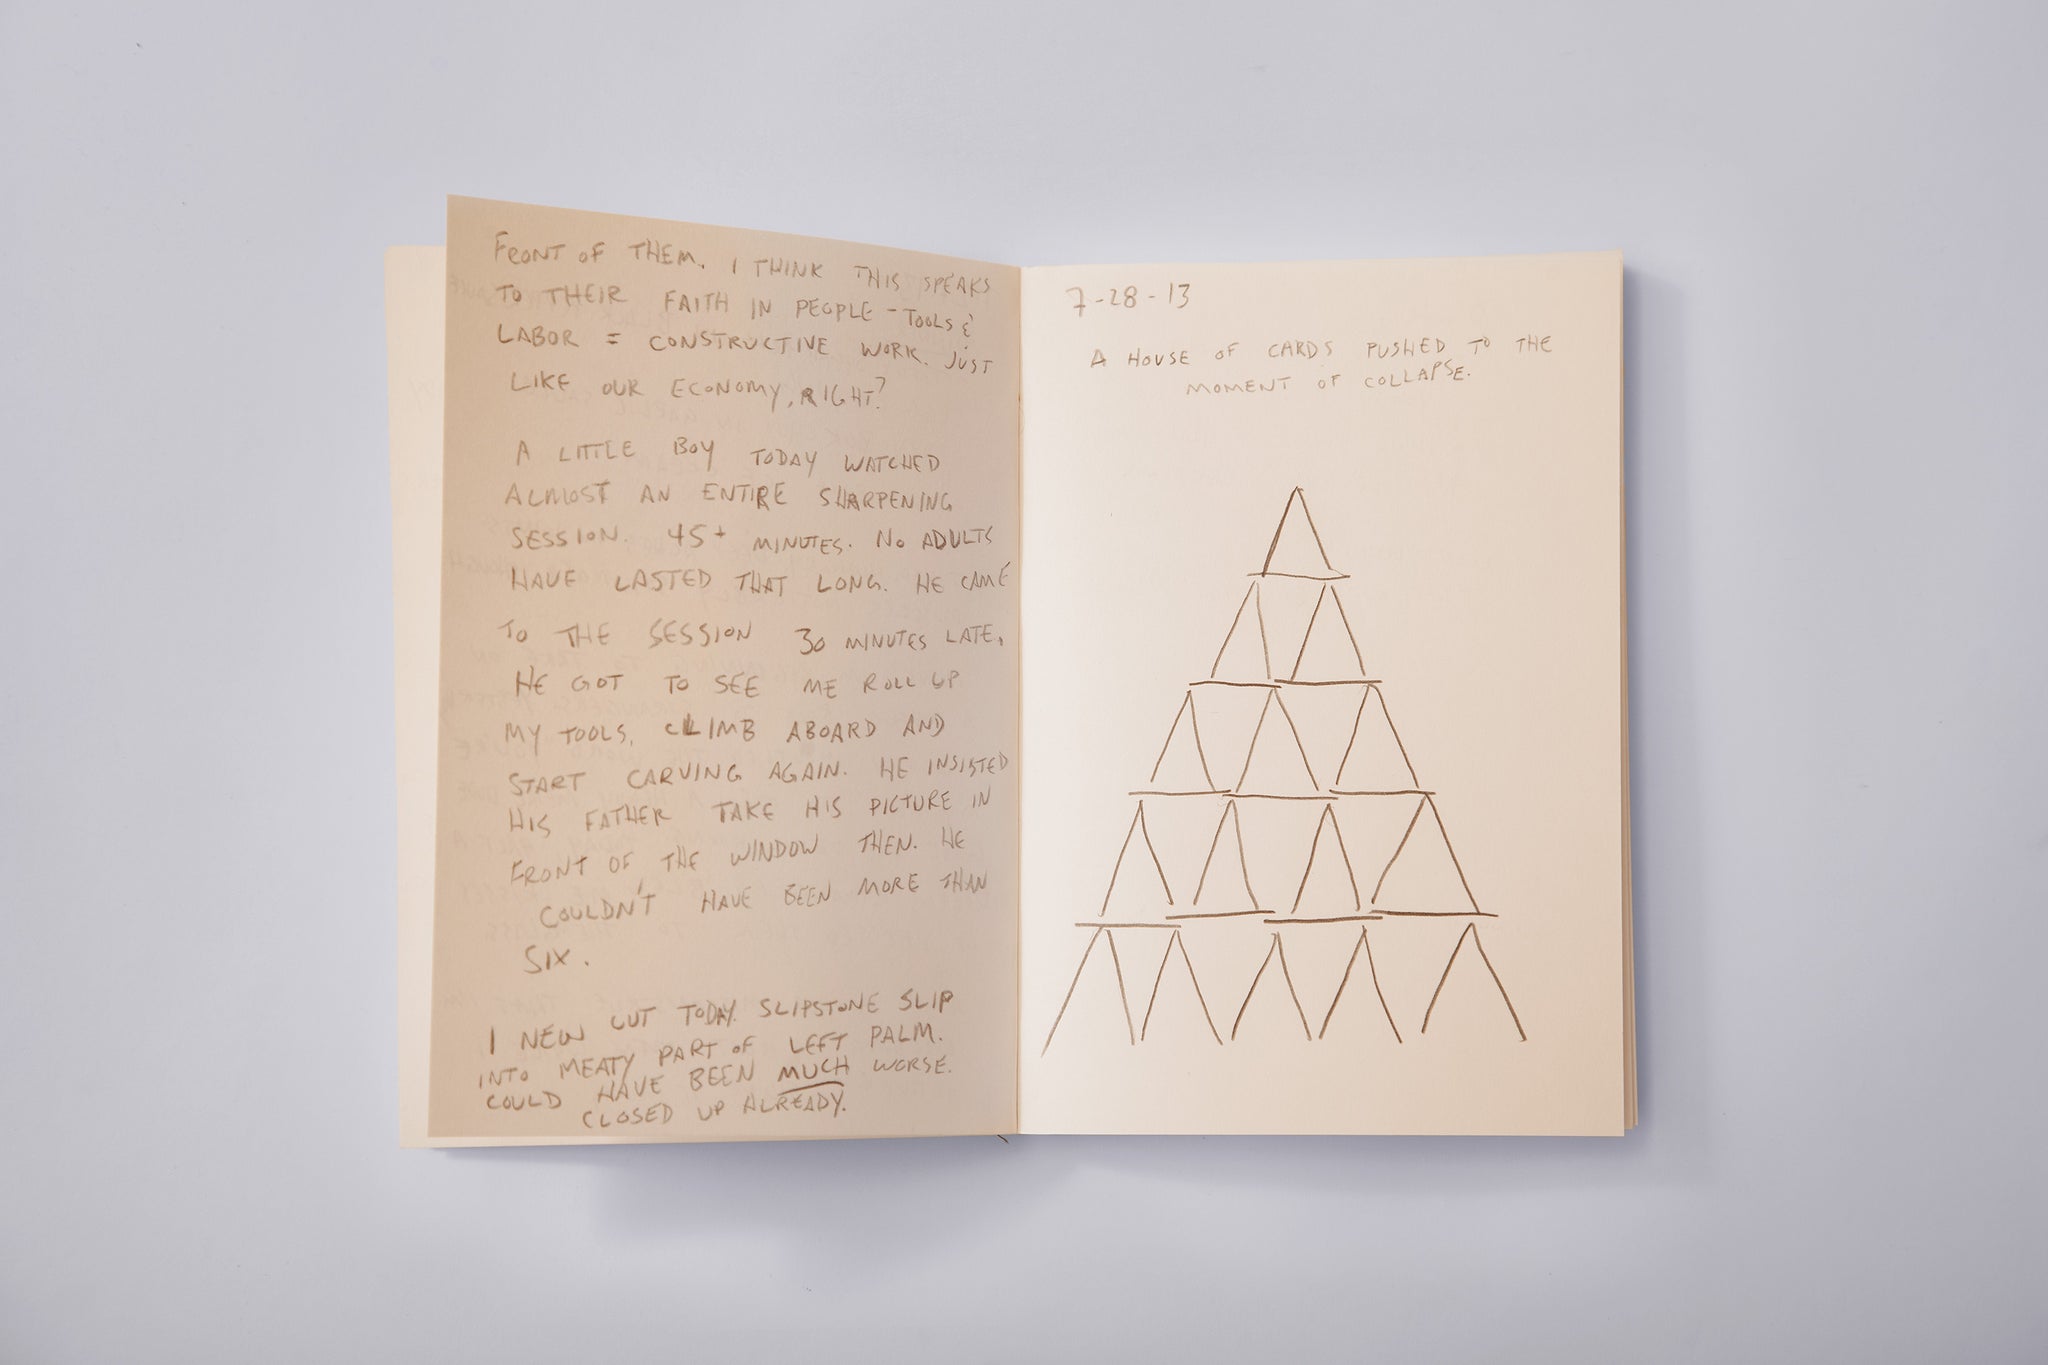 FRONT OF THEM. I THINK THIS SPEAKS
TO THEIR FAITH IN PEOPLE - TOOLS &
LABOR = CONSTRUCTIVE WORK. JUST
LIKE OUR ECONOMY, RIGHT?
A LITTLE BOY TODAY WATCHED
ALMOST AN ENTIRE SHARPENING
SESSION. 45+ MINUTES. NO ADULTS
HAVE LASTED THAT LONG. HE CAME
TO THE SESSION 30 MINUTES LATE,
HE GOT TO SEE ME ROLL UP
MY TOOLS, CLIMB ABOARD AND
START CARVING AGAIN. HE INSISTED
HIS FATHER TAKE HIS PICTURE IN
FRONT OF THE WINDOW THEN. HE
COULDN'T HAVE BEEN MORE THAN
SIX.
1 NEW CUT TODAY. SLIPSTONE SLIP
INTO MEATY PART OF LEFT PALM.
COULD HAVE BEEN MUCH WORSE.
CLOSED UP ALREADY.
7-28-13
A HOUSE OF CARDS PUSHED TO THE
MOMENT OF COLLAPSE.